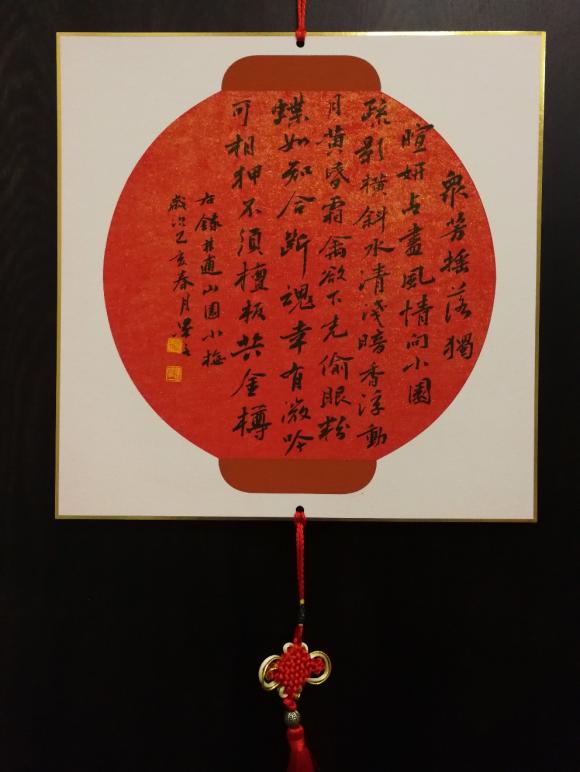 衆芳摇落獨
暄妍占盡風情向小園
疏影横斜水清淺暗香浮動
月黄昏霜禽欲下先偷眼粉
蝶如知合断魂幸有微吟
可相狎不須檀板共金樽
右錄林逋山園小梅
歲次己亥春月